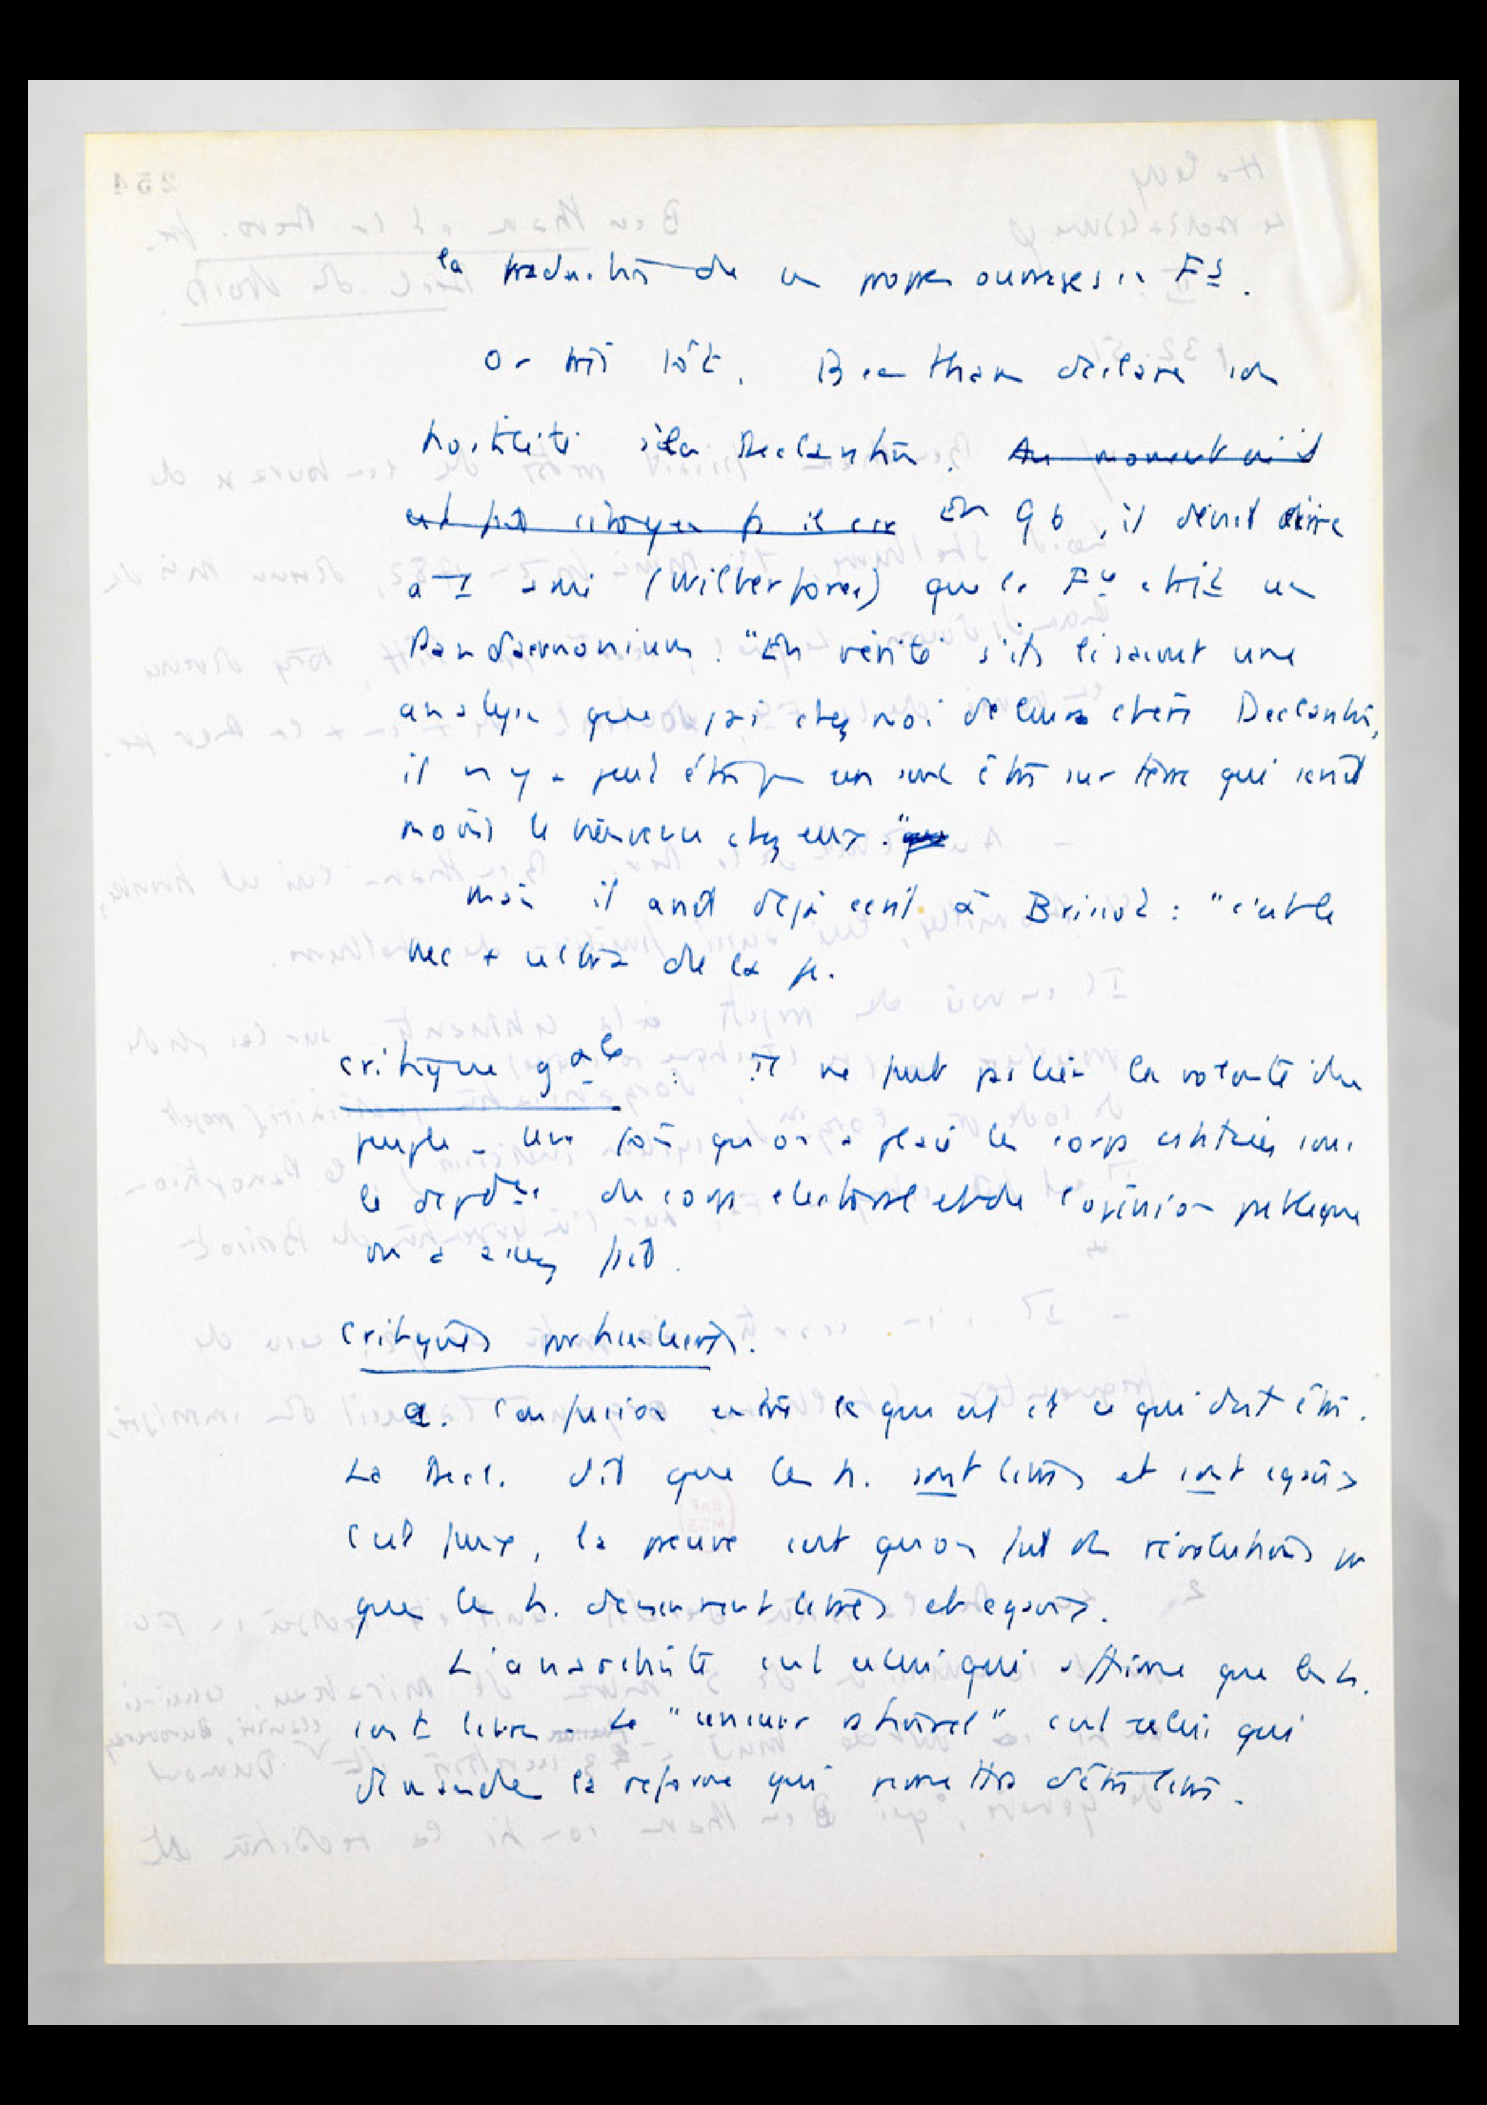 la traduction de ses propres ouvrages en Fs.
Or très tôt, Bentham déclare son
hostilité à la Declaration. Au moment où il
est fait citoyen fs il ecr En 96, il devait dire
à I ami (Wilberforce) que la Fce était un
Pandaemonium. "En vérité s'ils lisaient une
analyse que j'ai chez moi de leur chère Declaration,
il n'y a peut être pas un seul être sur terre qui serait
moins le bienvenu chez eux."
mais il avait déjà écrit à Brissot : "c'est le
nec + ultra de la
critique gale : Il ne faut pas lier la volonté du
peuple - Une fois qu'on a placé les corps constitués sous
la dépdce du corps electoral et de l'opinion publique
on a assez fait.
critiques particulières.
a. Confusion entre ce qui est et ce qui doit être.
La Decl. dit que les h. sont libres et sont egaux
c'est faux, la preuve c'est qu'on fait des révolutions pr
que les h. deviennent libres et egaux.
L'anarchiste est celui qui affirme que les h.
sont libres - Le "censeur rationnel" est celui qui
demande la reforme qui permettra d'être libre.